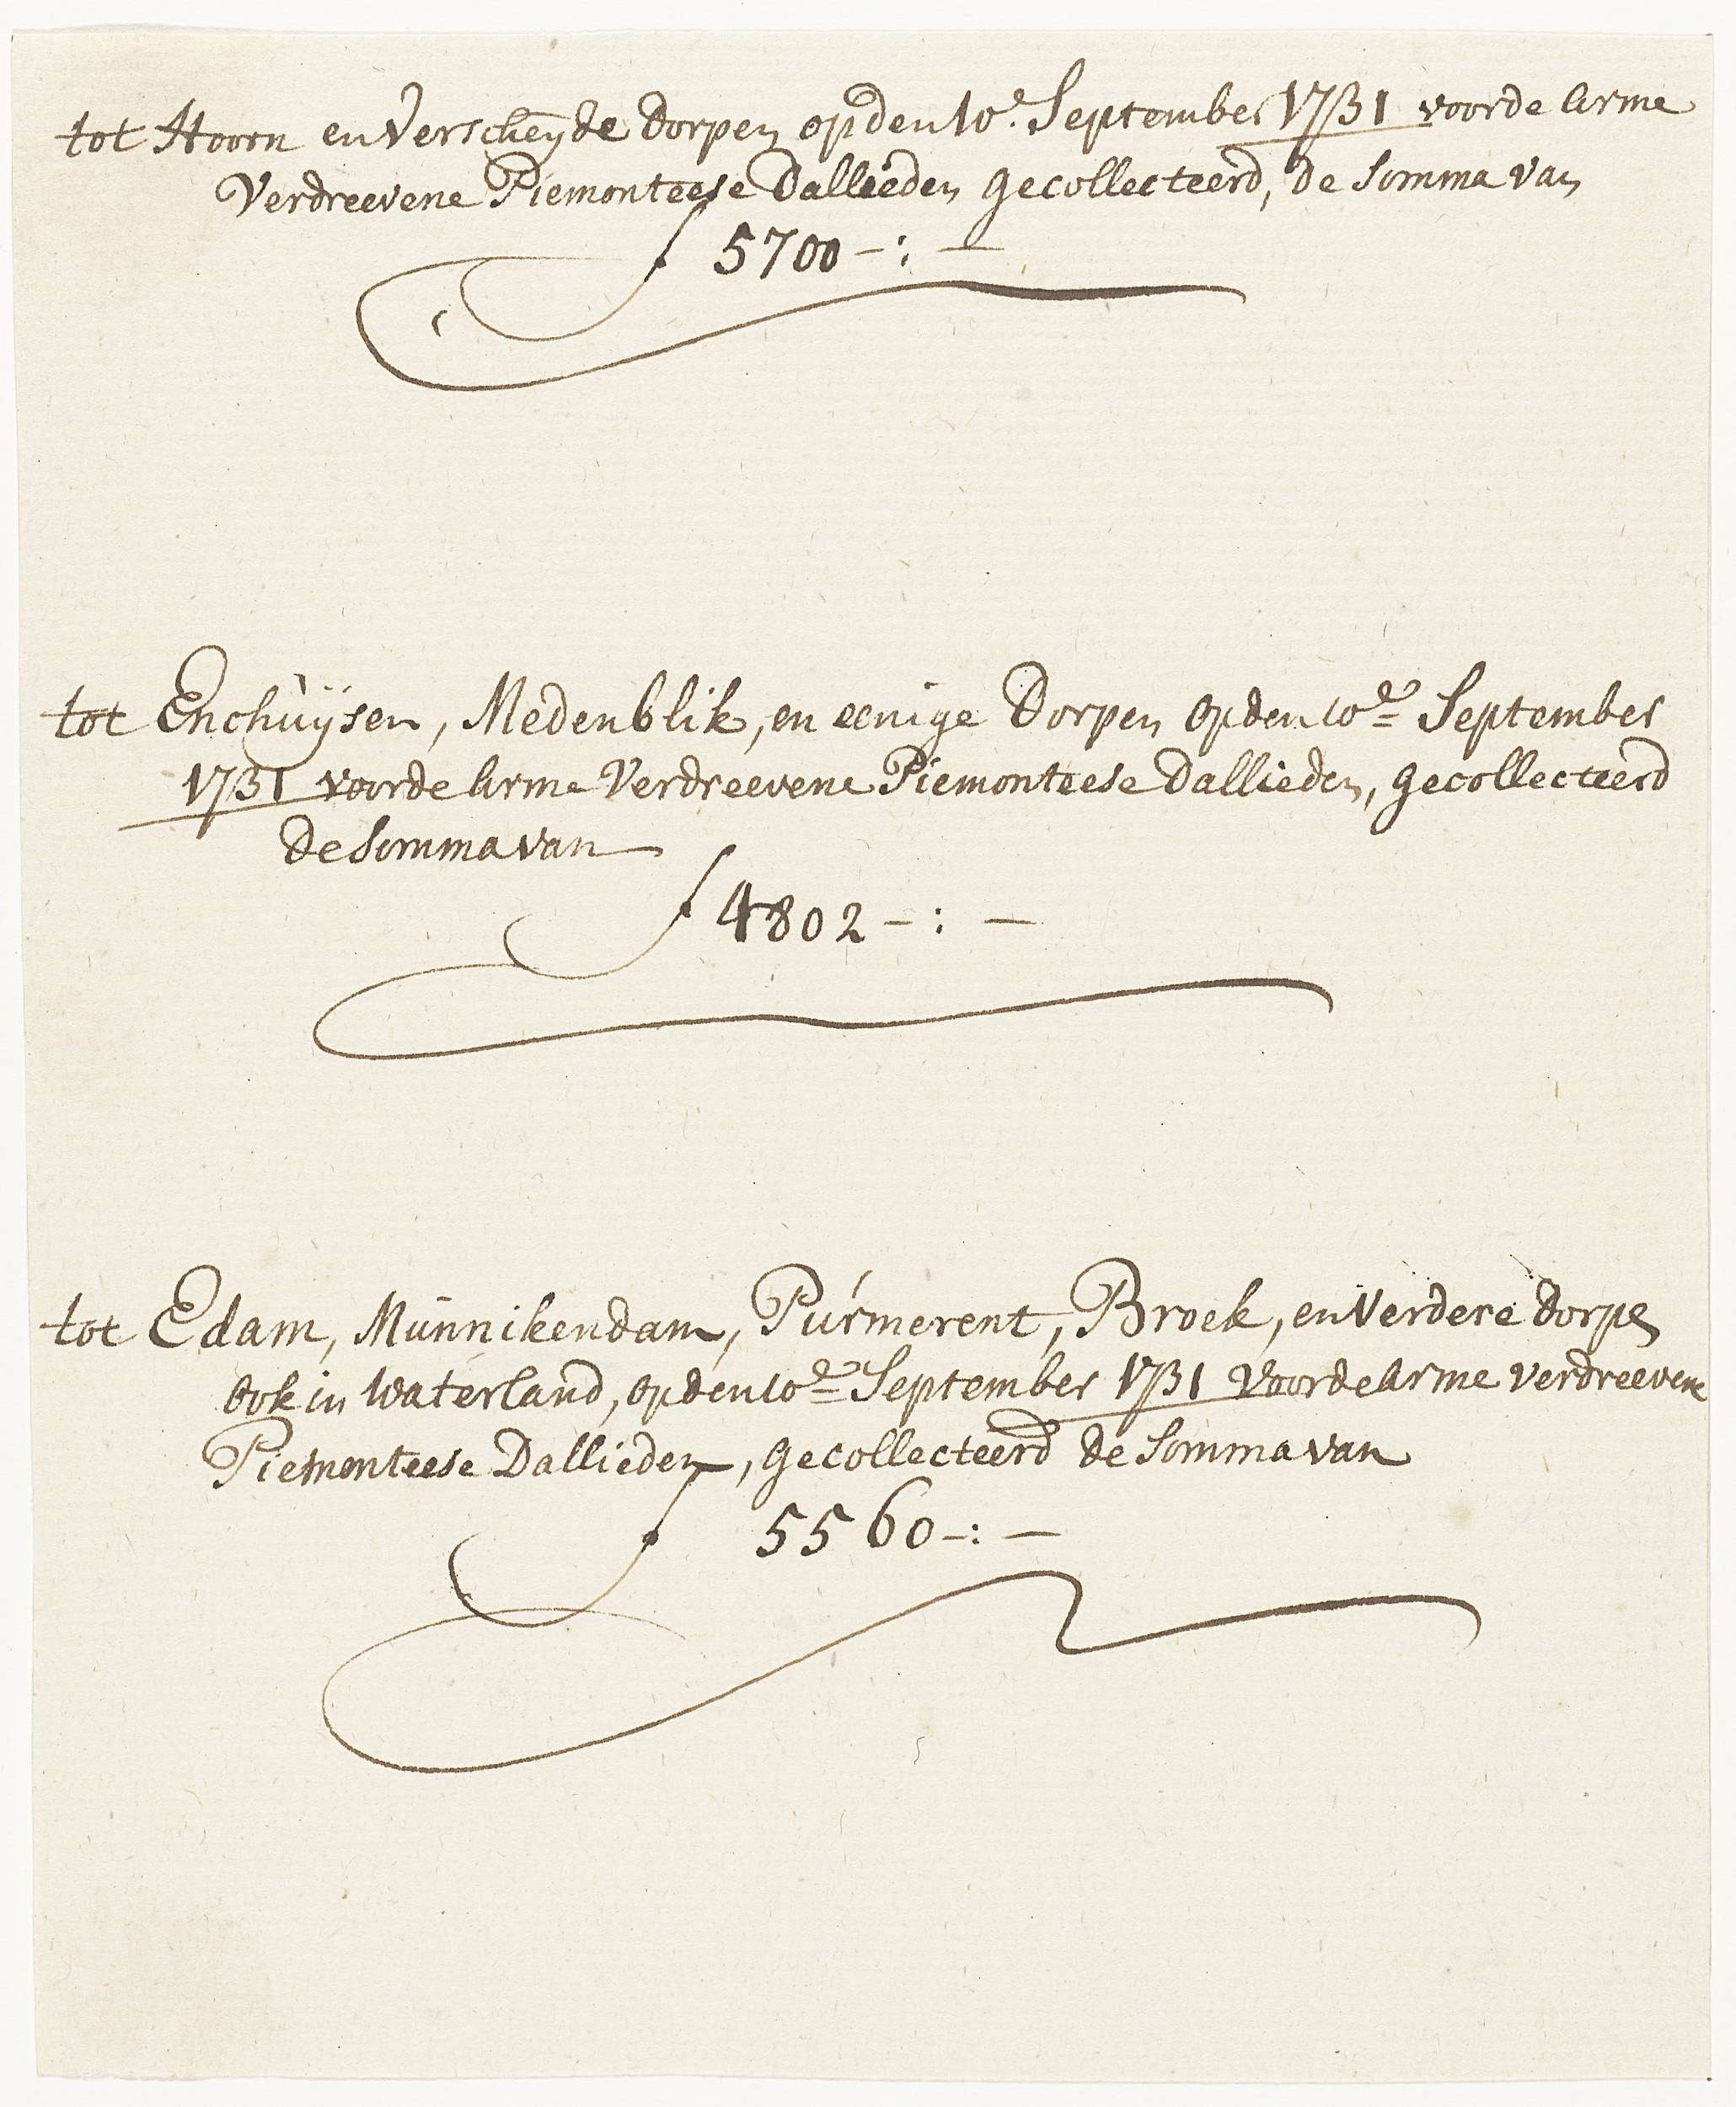 tot Hoorn en Verscheyde Dorpen op den 10e. September 1731 voor de Arme
Verdreevene Piemonteese Dallieden gecollecteerd, de Somma van
ƒ 5700 -:-
tot Enchuysen, Medenblik, en eenige Dorpen op den 10de September
1731 voor de Arme Verdreevene Piemonteese Dallieden, gecollecteerd
de Somma van
ƒ 4802 -:-
tot Edam, Munnikendam, Purmerent, Broek, en Verdere Dorpen
Ook in Waterland, op den 10de September 1731 voor de Arme Verdreevene
Piemonteese Dallieden, gecollecteerd de Somma van
ƒ 5560 -:-